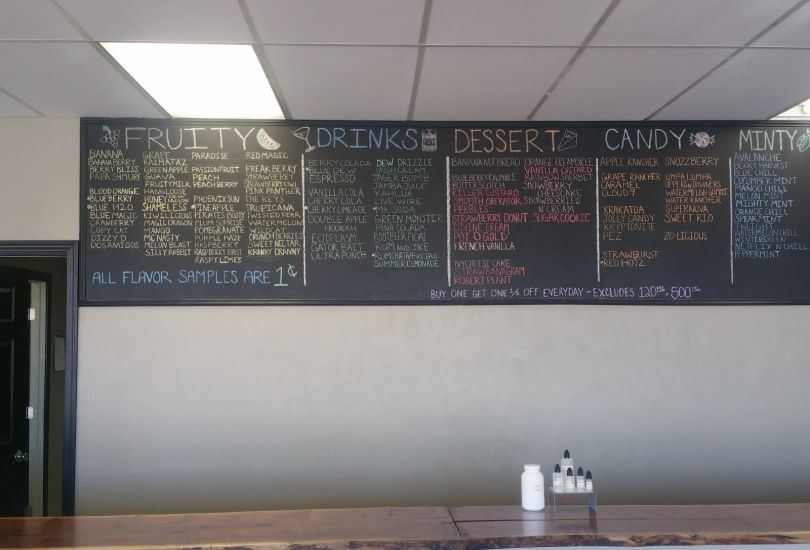 FRUITY
BANANA
BANANA BERRY
BERRY BLISS
PAPA SHMURF
BLOOD ORANGE
BLUE BERRY
BLUE H2O
BLUE MAGIC
CRANBERRY
COPY CAT
DIZZY D
DOS AMIGOS
GRAPE
RAZMATAZ
GREEN APPLE
GUAVA
FRUITY MILK
HANG LOOSE
HONEY
SHAMELESS
KIWILICIOUS
MAGIC DRAGON
MANGO
MC NASTY
MELON BLAST
SILLY RABBIT
PARADISE
PASSIONFRUIT
PEACH
PEACH BERRY
PHOENIX SUN
PINEAPPLE
PIRATES BOOTY
PLUM SURPRISE
POMEGRANATE
PURPLE HAZE
RASPBERRY
RASPBERRY BURST
RASPY LIMES
RED MAGIC
FREAK BERRY
STRAWBERRY
STRAWBERRY KIWI
PINK PANTHER
THE KEYS
TROPICANA
TWISTED PEAR
WATERMELON
WILDCAT
CRUNCH BERRIES
SWEET NECTAR
KRANKY GRANNY
ALL FLAVOR SAMPLES ARE 1¢
DRINKS
BERRY COLADA
BLUE DEW
ESPRESSO
VANILLA COLA
CHERRY COLA
CHERRY LIMEADE
DOUBLE APPLE
HOOKAH
ECTOPLASM
GATOR BAIT
ULTRA PUNCH
DEW DRIZZLE
IRISH CREAM
JAGER BOMB
JAMBA JUICE
KAHLUA
LIVE WIRE
MT. SODA
GREEN MONSTER
PINA COLADA
ROOTBEER FLOAT
RUM N COKE
SUMMER LEMONADE
DESSERT
BANANA NUT BREAD
BLUEBERRY CRUMBLE
BUTTERSCOTCH
KILLER CUSTARD
SMOOTH OPERATOR
PEBBLES
STRAWBERRY DONUT
DIVINE CREAM
POT O GOLD
FRENCH VANILLA
NY CHEESECAKE
STRAWBANAGRAM
ROBERT PLANT
ORANGE DREAMSICLE
VANILLA CUSTARD
RAINBOW SHERBET
SNOWBERRY
STRAWBERRIES
N CREAM
SUGAR COOKIE
CANDY
APPLE RANCHER
GRAPE RANCHER
CARAMEL
CLOUD 9
KRAKATOA
JOLLY CANDY
KRYPTONITE
PEZ
STRAWBURST
RED HOTZ
SNOZZBERRY
UMPA LUMPA
UPPER DOWNERS
WATERMELON GUMMIES
WATER RANCHER
SUPERNOVA
SWEET RIO
ZO-LICIOUS
MINTY
AVALANCHE
BERRY HARVEST
BLUE CHILL
CUCUMBER MINT
MANGO CHILL
MELON MINT
MIGHTY MINT
ORANGE CHILL
SPEARMINT
TWILIGHT
WATERMELON CHILL
WINTERGREEN
NETFLIX N CHILL
PEPPERMINT
BUY ONE GET ONE 1/2 OFF EVERYDAY - EXCLUDES 120ML & 500ML